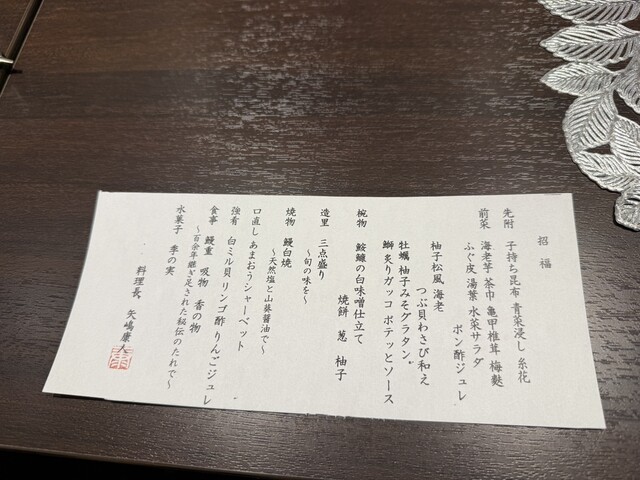 招福
先附 子持ち昆布 青菜浸し 糸花
前菜 海老芋・茶巾 亀甲椎茸 梅麩
ふぐ皮 湯葉 水菜サラダ
ポン酢ジュレ
柚子松風 海老
つぶ貝わさび和え
牡蠣 柚子みそグラタン
鰤炙りガッコ ポテッとソース
椀物 鮟鱇の白味噌仕立て
焼餅 葱 柚子
造里 三点盛り
～旬の味を～
焼物 鰻白焼
～天然塩と山葵醤油で～
口直し あまおうシャーベット
強肴 白ミル貝 リンゴ酢 りんごジュレ
食事 鰻重 吸物 香の物
～百余年継ぎ足された秘伝のたれで～
水菓子 季の実
料理長 矢嶋康人